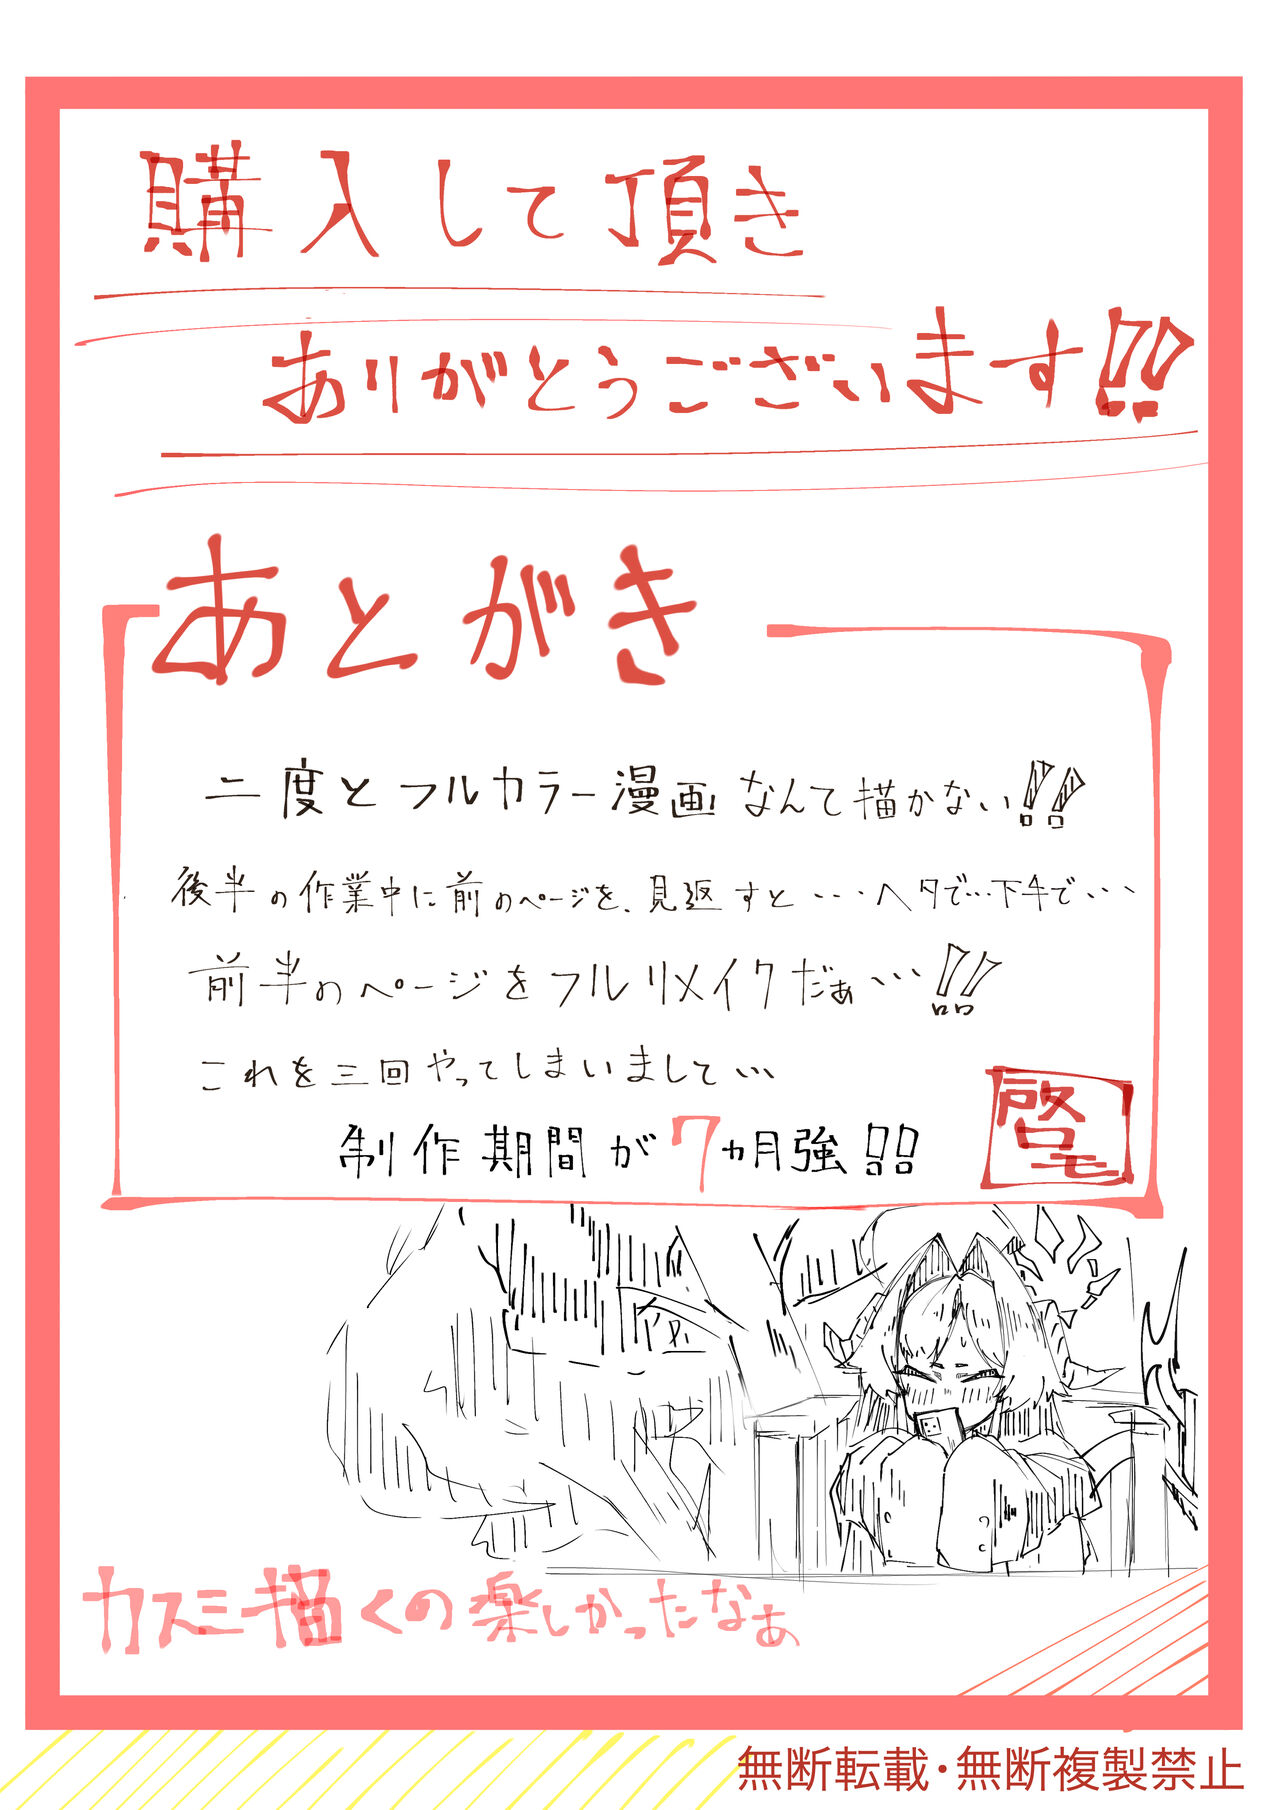 購入して頂き
ありがとうございます!!
あとがき
二度とフルカラー漫画なんて描かない!!
後半の作業中に前のページを、見返すと・・・ヘタで・・・下手で・・・
前半のページをフルリメイクだぁ・・・!!
これを三回やってしまいまして・・・
制作期間が7ヵ月強!!
カスミ描くの楽しかったなぁ
無断転載・無断複製禁止